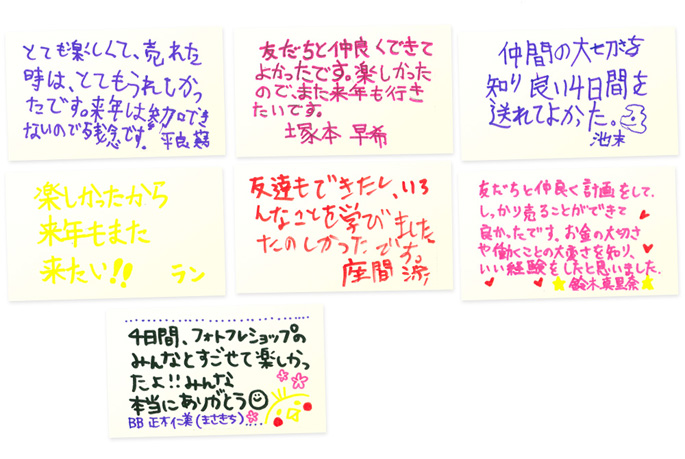 とても楽しくて、売れた
時は、とてもうれしかっ
たです。来年は参加でき
ないので残念です。平良
友だちと仲良くできて
よかったです。楽しかった
ので、また来年も行き
たいです。
塚本 早希
仲間の大切さを
知り良い4日間を
送れてよかった。
池末
楽しかったから
来年もまた
来たい!! ラン
友達もできたし、いろ
んなことを学びました
たのしかったです。
座間
友だちと仲良く計画をして、
しっかり売ることができて
良かったです。お金の大切さ
や働くことの大事さを知り、
いい経験をしたと思いました。
鈴木真里奈
4日間、フォトフレショップの
みんなとすごせて楽しかっ
たよ!!みんな
本当にありがとう
BB 正木仁美(まさきち)....